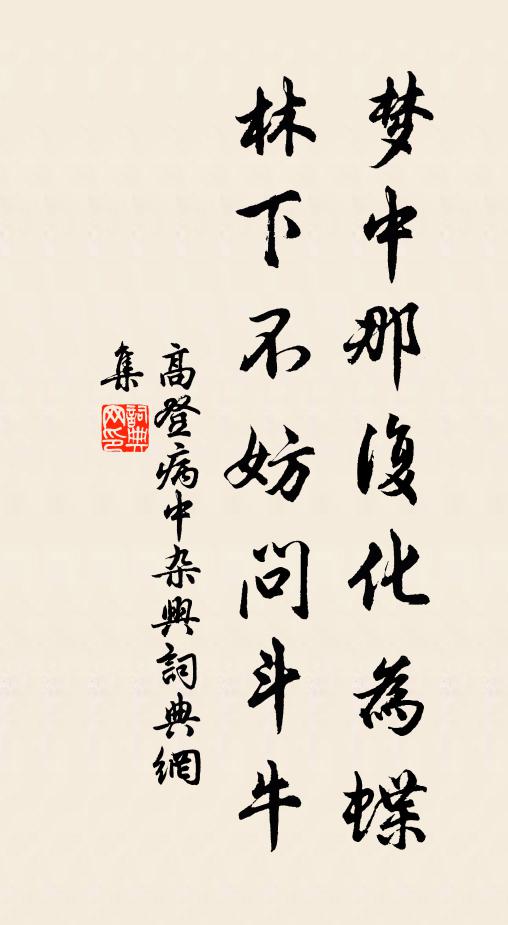 梦中那復化為蝶
林下不妨問斗牛
高登病中杂興詞典網
集
詞典
网印